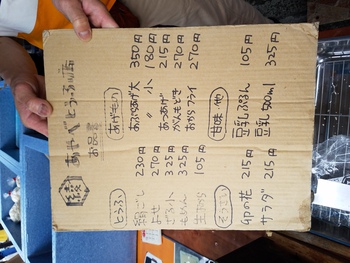 綾
あやべとうふ店
お品書
とうふ
絹ごし 230円
よせ 270円
ざる小 325円
もめん 325円
105円
あげもの
あぶらあげ大 350円
〃 小 180円
あつあげ 215円
がんもどき 270円
おからフライ 270円
卯の花 215円
サラダ 215円
甘味・他
豆乳ぷりん 105円
豆乳500ml 325円